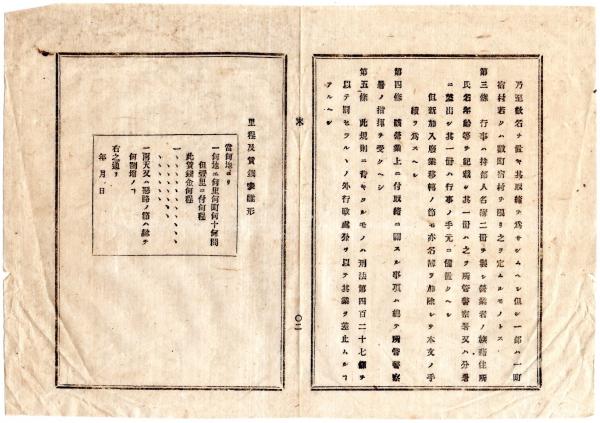 乃至数名ヲ置キ其取締ヲ為サシムヘシ但シ一部ハ一町
宿村若クハ数町宿村ヲ限リ之ヲ定ムルモノトス
第三條 行事ハ持部人名簿二冊ヲ製シ営業者ノ族籍住所
氏名年齢等ヲ記載シ其一冊ハ之ヲ所管警察署又ハ分署
ニ差出シ其一冊ハ行事ノ手元ニ備置クヘシ
但新加入廃業移転ノ節モ亦名簿ヲ加除シテ本文ノ手
續ヲ為スヘシ
第四條 該營業上ニ付取締ニ關スル事項ハ總テ所管警察
署ノ指揮ヲ受クヘシ
第五條 此規則ニ背キタルモノハ刑法第四百二十七條ヲ
以テ罰セラルヽノ外行政處分ヲ以テ其業ヲ差止ムルヿ
アルヘシ
〇二
里程及賃錢表雛形
當何地ヨリ
一何地ヱ何里何町何十何間
但壹里ニ付何程
此賃錢金何程
一、、、、、、、、
、、、、、、、、
一雨天又ハ惡路ノ節ハ總テ
何割増ノヿ
右之通リ
年 月 日